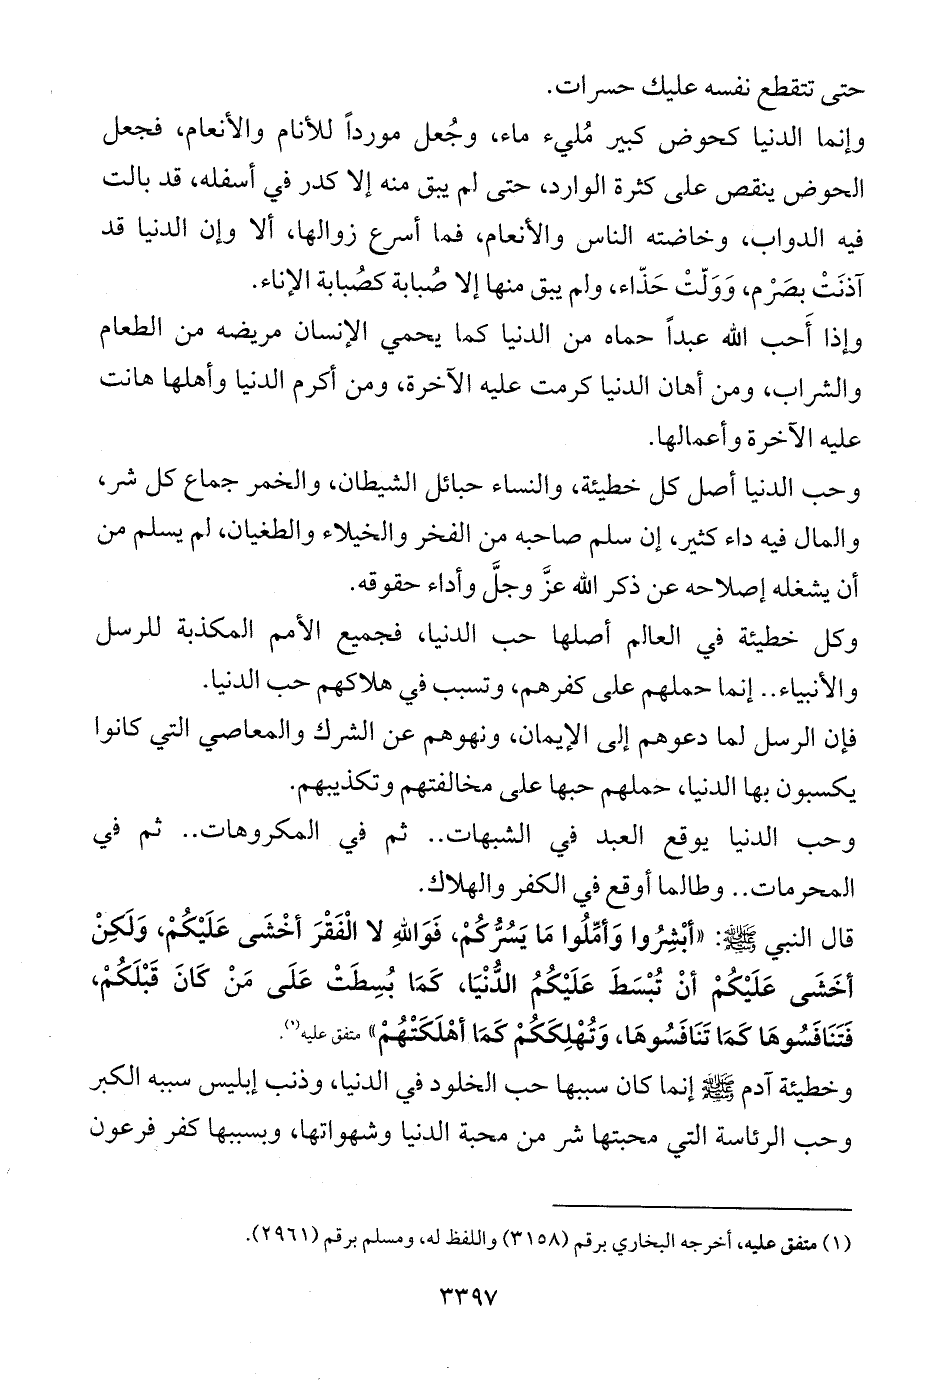 حتى تتقطع نفسه عليك حسرات.
وإنما الدنيا كحوض كبير مُليء ماء، وجُعل مورداً للأنام والأنعام، فجعل
الحوض ينقص على كثرة الوارد، حتى لم يبق منه إلا كدر في أسفله، قد بالت
فيه الدواب، وخاضته الناس والأنعام، فما أسرع زوالها، ألا وإن الدنيا قد
آذنَتْ بصَرْم، وَوَلّتْ حَذّاء، ولم يبق منها إلا صُبابة كصُبابة الإناء.
وإذا أَحب الله عبداً حماه من الدنيا كما يحمي الإنسان مريضه من الطعام
والشراب، ومن أهان الدنيا كرمت عليه الآخرة، ومن أكرم الدنيا وأهلها هانت
عليه الآخرة وأعمالها.
وحب الدنيا أصل كل خطيئة، والنساء حبائل الشيطان، والخمر جماع كل شر،
والمال فيه داء كثير، إن سلم صاحبه من الفخر والخيلاء والطغيان، لم يسلم من
أن يشغله إصلاحه عن ذكر الله عزَّ وجلَّ وأداء حقوقه.
وكل خطيئة في العالم أصلها حب الدنيا، فجميع الأمم المكذبة للرسل
والأنبياء.. إنما حملهم على كفرهم، وتسبب في هلاكهم حب الدنيا.
فإن الرسل لما دعوهم إلى الإيمان، ونهوهم عن الشرك والمعاصي التي كانوا
يكسبون بها الدنيا، حملهم حبها على مخالفتهم وتكذيبهم.
وحب الدنيا يوقع العبد في الشبهات.. ثم في المكروهات.. ثم في
المحرمات.. وطالما أوقع في الكفر والهلاك.
قال النبي ﷺ: «أبْشِرُوا وَأمِّلُوا مَا يَسُرُّكُمْ، فَوَاللهِ لا الْفَقْرَ أخْشَى عَلَيْكُمْ، وَلَكِنْ
أخَشَى عَلَيْكُمْ أنْ تُبْسَطَ عَلَيْكُمُ الدُّنْيَا، كَمَا بُسِطَتْ عَلَى مَنْ كَانَ قَبْلَكُمْ،
فَتَنَافَسُوهَا كَمَا تَنَافَسُوهَا، وَتُهْلِكَكُمْ كَمَا أهْلَكَتْهُمْ» متفق عليه(١).
وخطيئة آدم ﷺ إنما كان سببها حب الخلود في الدنيا، وذنب إبليس سببه الكبر
وحب الرئاسة التي محبتها شر من محبة الدنيا وشهواتها، وبسببها كفر فرعون
(١) متفق عليه، أخرجه البخاري برقم (٣١٥٨) واللفظ له، ومسلم برقم (٢٩٦١).
٣٣٩٧